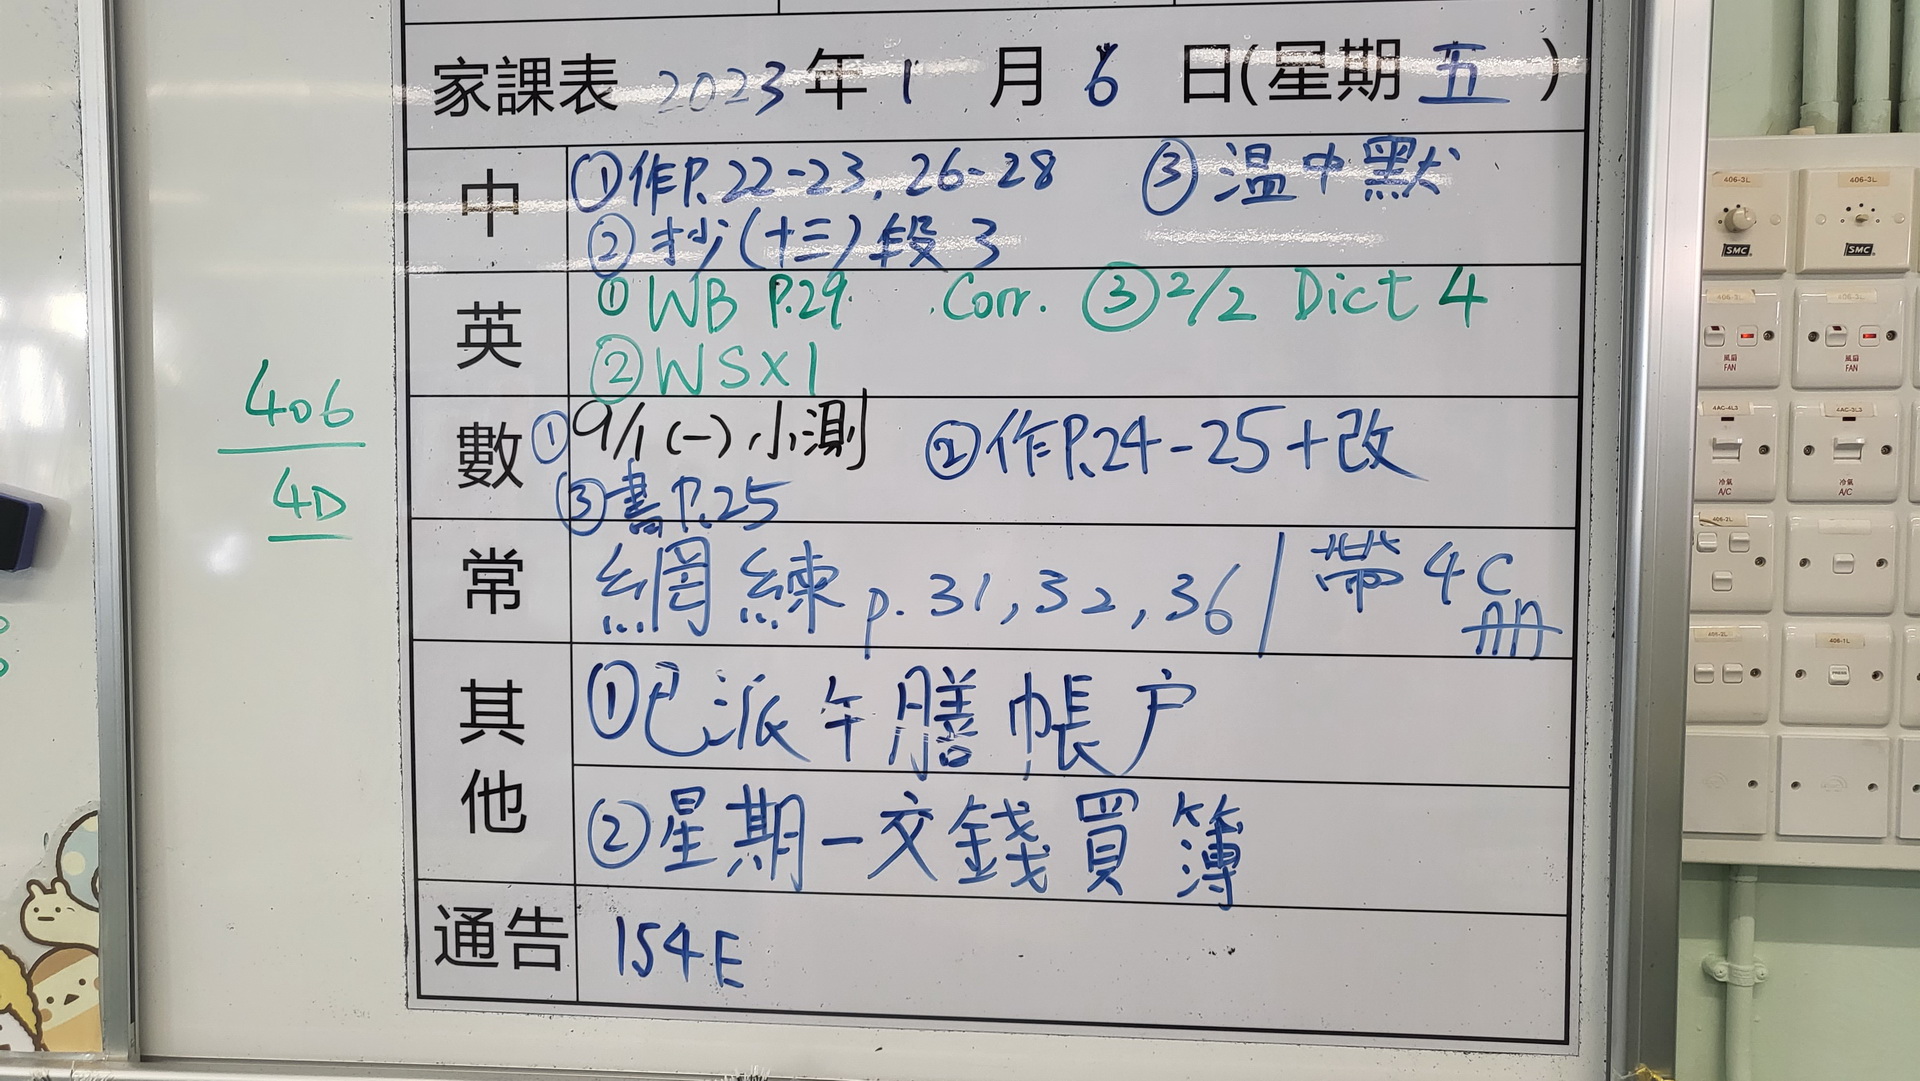 家課表 2023年1月6日(星期五)
中 ①作P.22-23, 26-28 ③溫中默
②抄(十三)段3
英 ①WB P.29. Corr. ③2/2 Dict 4
②WS×1
數 ①9/1(一)小測 ②作P.24-25+改
③書P.25
常 網練 p.31,32,36 / 帶4C冊
其他 ①已派午膳帳户
②星期一交錢買簿
通告 154E
406
4D
406-3L
406-3L
SMC
SMC
406-3L
風扇
FAN
風扇
FAN
4AC-4L3
4AC-3L3
冷氣
A/C
冷氣
A/C
406-2L
406-2L
406-1L
PRESS